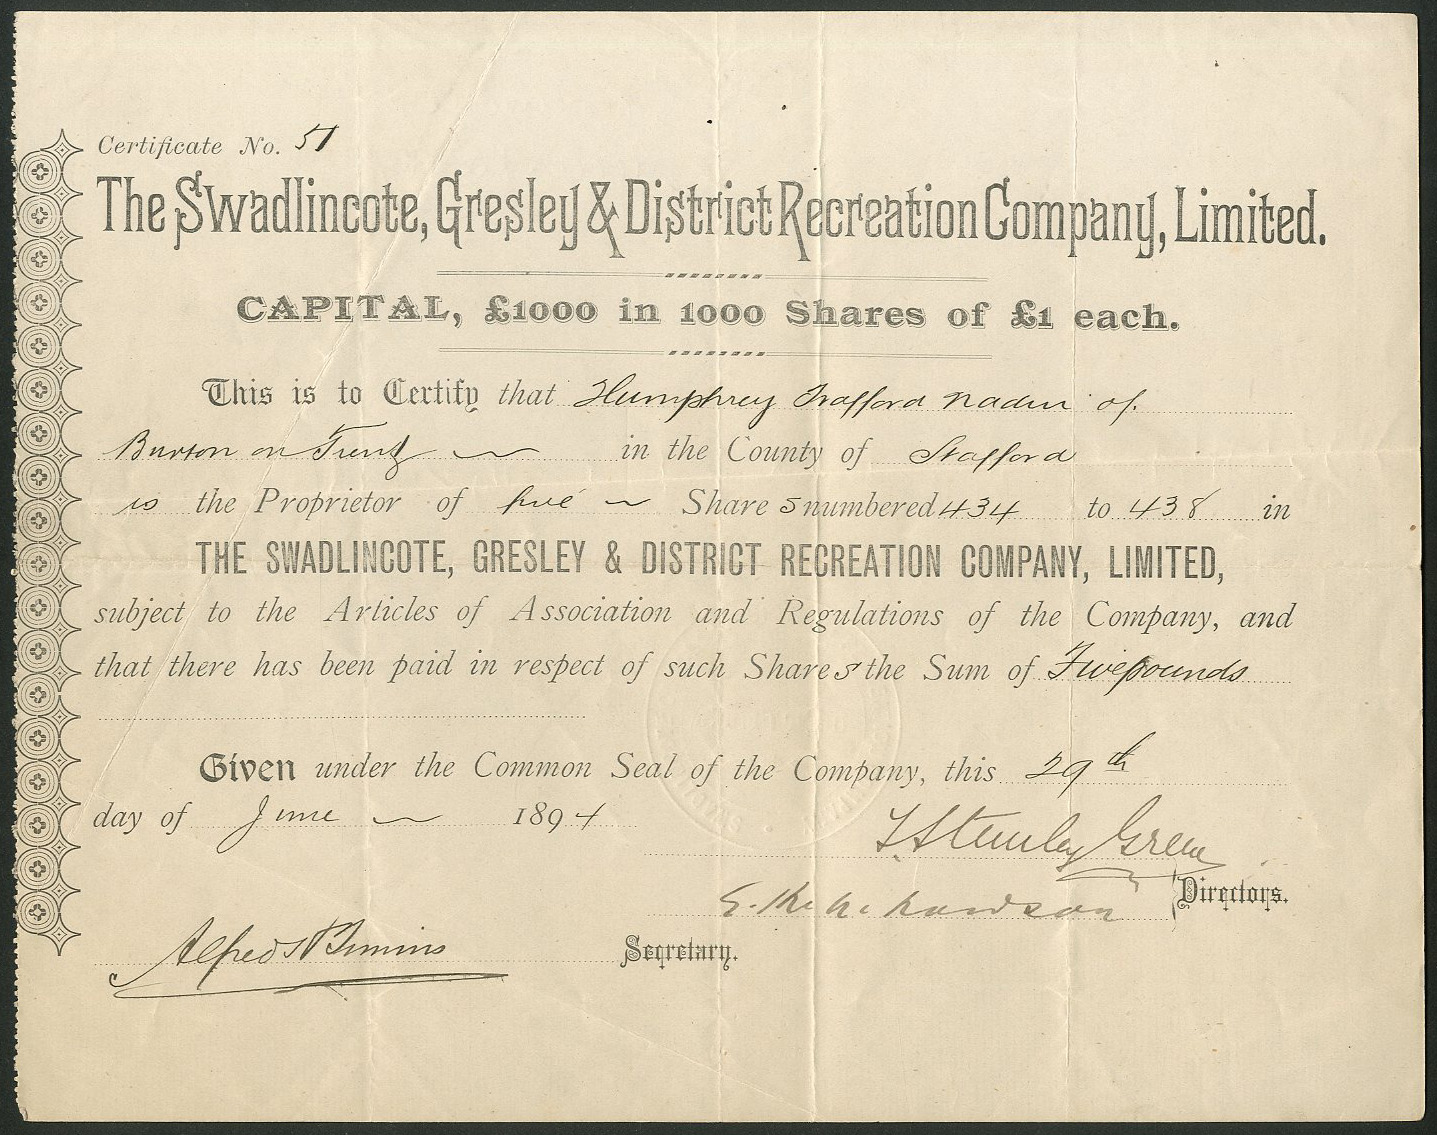 Certificate No. 51
The Swadlincote, Gresley & District Recreation Company, Limited.
CAPITAL, £1000 in 1000 Shares of £1 each.
This is to Certify that Humphrey Trafford Nadin of
Burton on Trent in the County of Stafford
is the Proprietor of five Shares numbered 434 to 438 in
THE SWADLINCOTE, GRESLEY & DISTRICT RECREATION COMPANY, LIMITED,
subject to the Articles of Association and Regulations of the Company, and
that there has been paid in respect of such Shares the Sum of Five pounds
Given under the Common Seal of the Company, this 29th
day of June 1894
Stanley Greene
Directors.
E. Richardson
Alfred
Secretary.